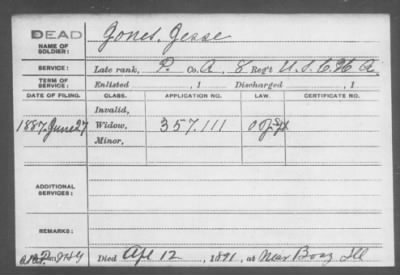 DEAD
NAME OF SOLDIER:
Jones, Jesse
SERVICE:
Late rank, P. Co. A, 8 Reg't U.S.C.H.A.
TERM OF SERVICE:
Enlisted , 1 Discharged , 1
DATE OF FILING. CLASS. APPLICATION NO. LAW. CERTIFICATE NO.
Invalid,
1887. June 27 Widow, 357.111
Minor,
ADDITIONAL SERVICES:
REMARKS:
Died Apl 12, 1871, at Near Boaz Ill